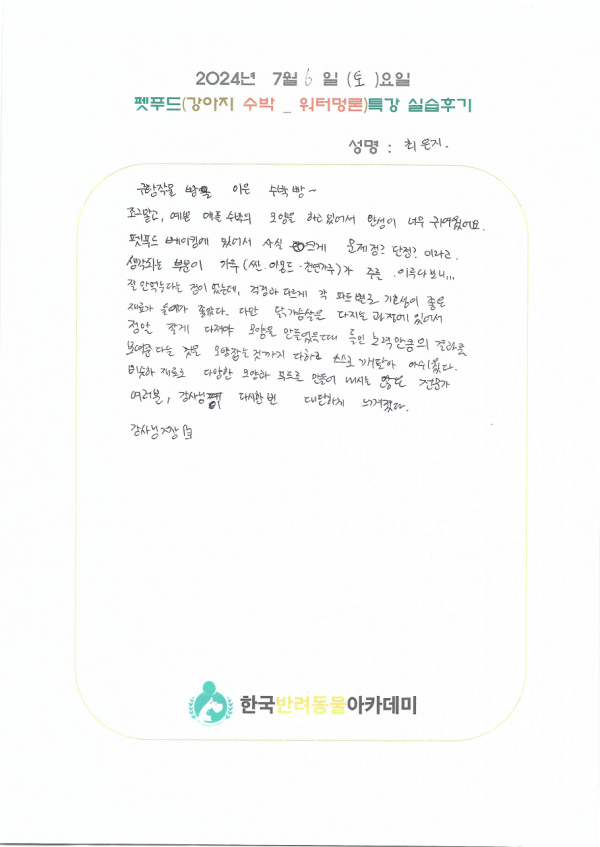 2024년 7월 6일 (토)요일
펫푸드(강아지 수박 _ 워터멍론)특강 실습후기
성명 : 최은지.
수박빵~
조그맣고, 예쁜 애플수박의 모양을 하고 있어서 완성이 너무 귀여웠어요.
펫푸드 베이킹에 있어서 사실 크게 문제점? 단점? 이라고
생각되는 부분이 가루(쌀·아몬드·천연가루)가 주를 이루다보니...
잘 안먹는다는 점이 있는데, 걱정과 다르게 각 파트별로 기호성이 좋은
재료가 들어가 좋았다. 다만 닭가슴살을 다지는 과정에 있어서
정말 잘게 다져야 모양을 만들 수 있는데 들인 노력만큼의 결과를
보여준다는 것을 모양잡는 것까지 다하고 스스로 깨달아 아쉬웠다.
비슷한 재료로 다양한 모양과 푸드를 만들어 내시는 많은 전문가
여러분, 강사님 다시한번 대단하게 느껴졌다.
강사님 짱
한국반려동물아카데미